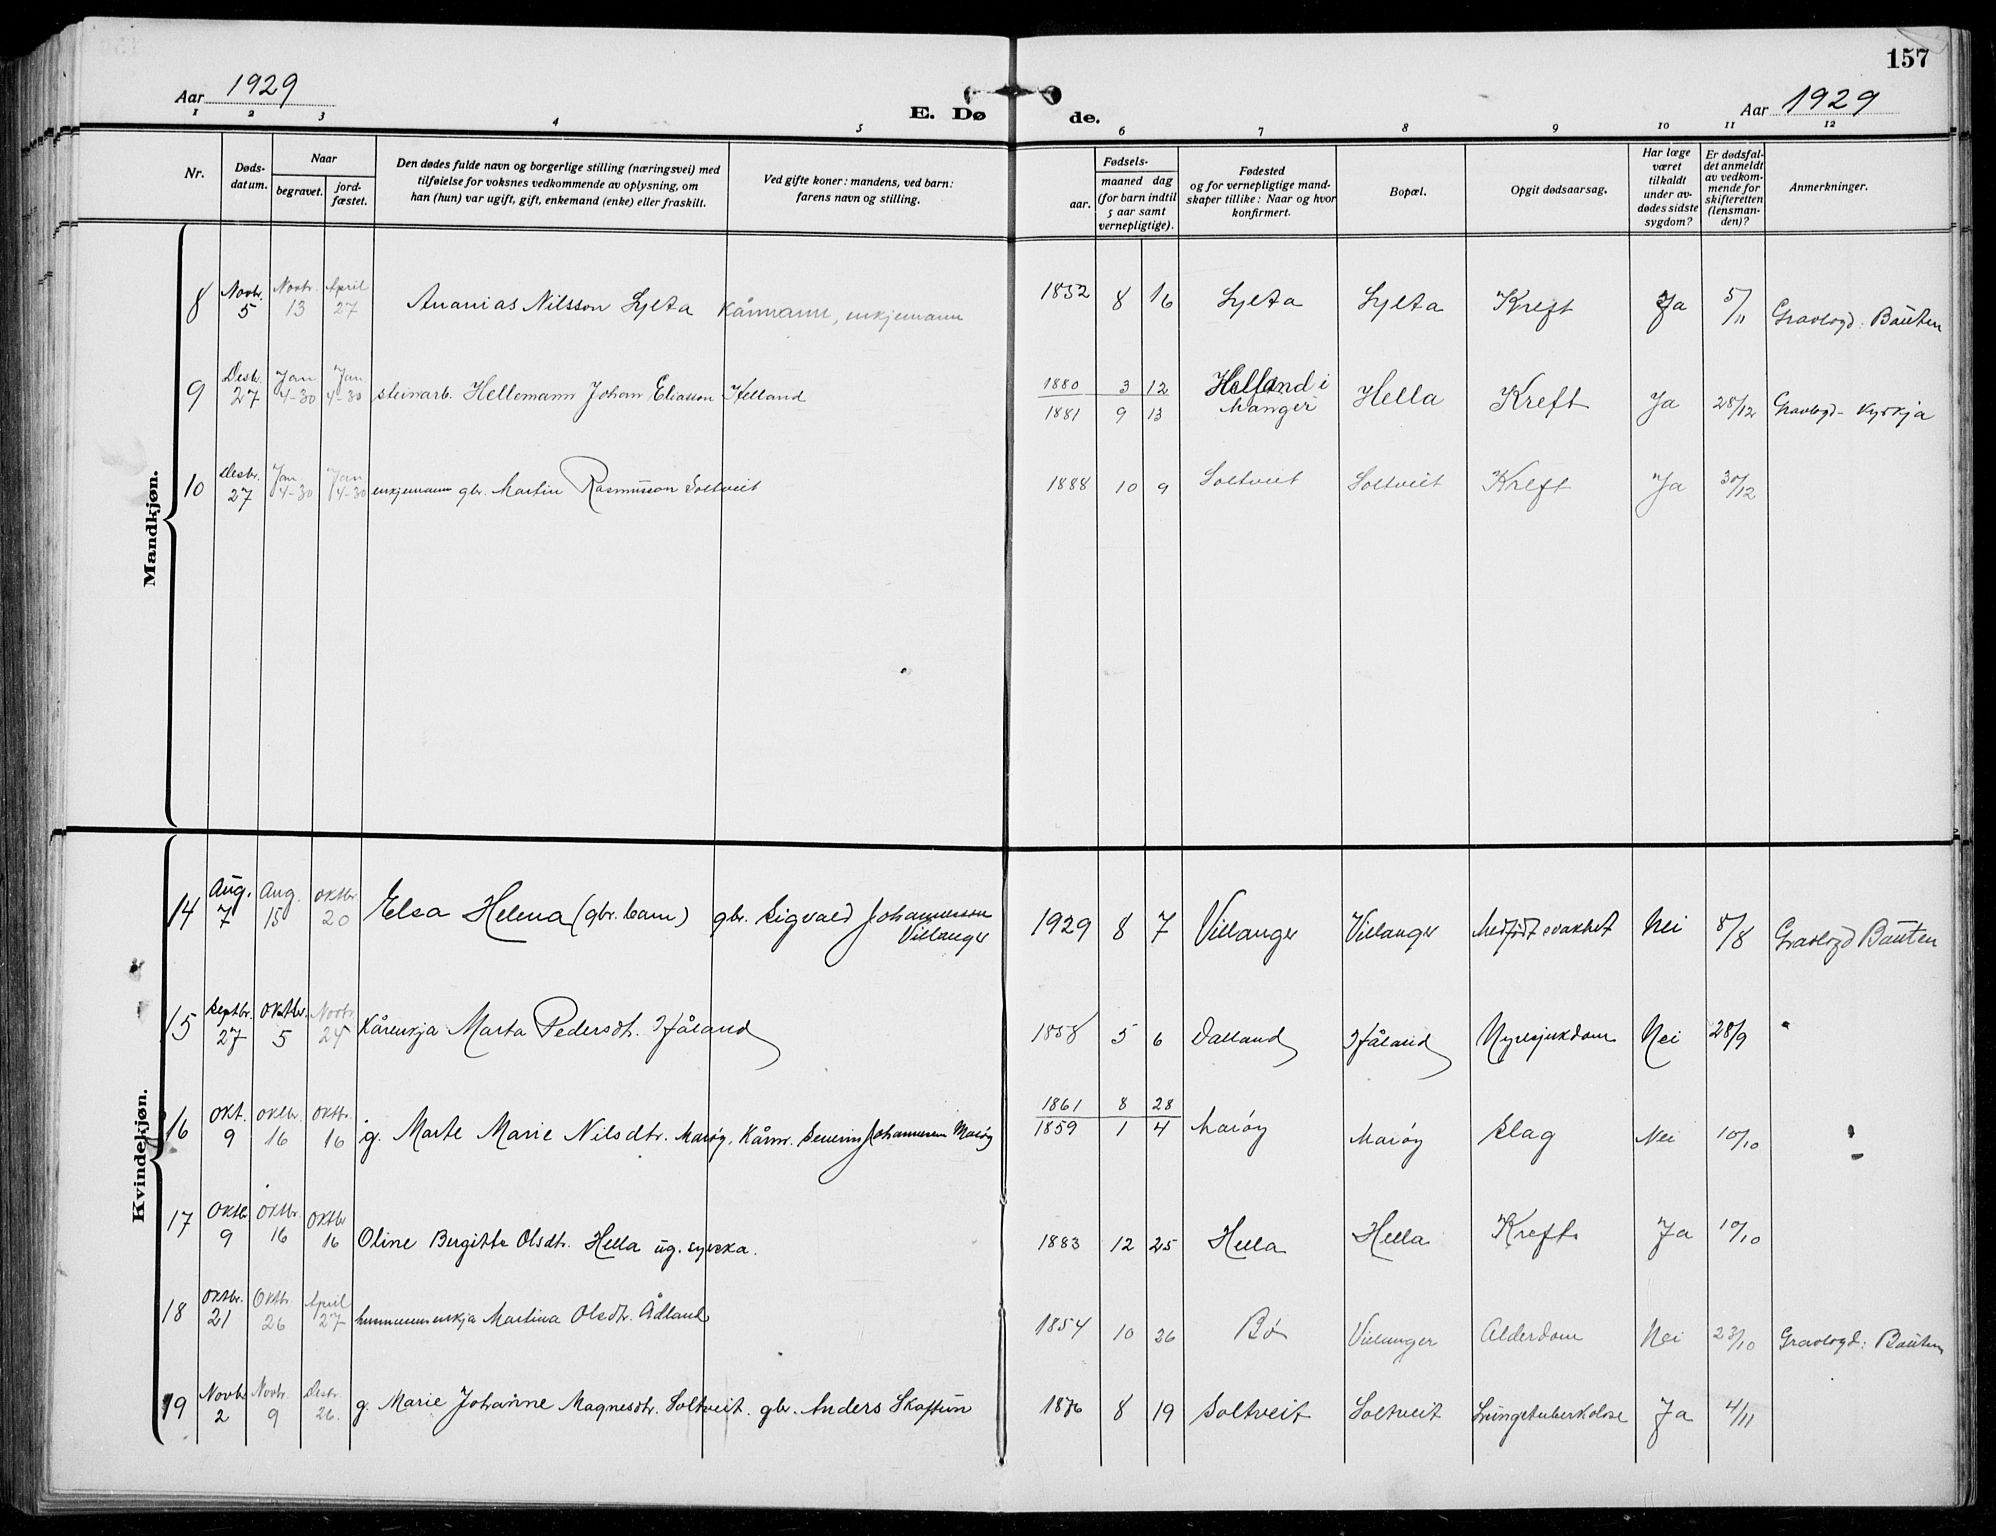 157
Aar 1929
E. Dø
de.
Aar 1929
1 2 3 4 5 6 7 8 9 10 11 12
Nr.
Døds-
datum.
Naar
begravet.
jord-
fæstet.
Den dødes fulde navn og borgerlige stilling (næringsvei) med
tilføielse for voksnes vedkommende av oplysning, om
han (hun) var ugift, gift, enkemand (enke) eller fraskilt.
Ved gifte koner: mandens, ved barn:
farens navn og stilling.
Fødsels-
aar.
maaned dag
(for barn indtil
5 aar samt
vernepligtige).
Fødested
og for vernepligtige mand-
skaper tillike: Naar og hvor
konfirmert.
Bopæl.
Opgit dødsaarsag.
Har læge
været
tilkaldt
under av-
dødes sidste
sygdom?
Er dødsfal-
det anmeldt
av vedkom-
mende for
skifteretten
(lensman-
den)?
Anmerkninger.
Mandkjøn.
8 Novbr. 5 Novbr. 13 April 27 Ananias Nilsson Sylta kårmann, enkjemann 1852 8 16 Sylta Sylta Kreft Ja 5/11 Gravlogd: Bauten
9 Desbr. 27 Jan 4-30 Jan 4-30 steinarb. Hellemann Johan Eliasson Helland 1880 3 12 Helland i Hella Kreft Ja 28/12 Gravlogd- kyrkja
1881 9 13 Manger
10 Desbr. 27 Jan 4-30 Jan 4-30 enkjemann gbr. Martin Rasmusson Soltveit 1888 10 9 Soltveit Soltveit Kreft Ja 30/12
Kvindekjøn.
14 Aug. 7 Aug. 15 Oktbr 20 Elsa Helena (gbr. barn) gbr. Sigvald Johannesson
Villanger 1929 8 7 Villanger Villanger Medfødt svakhet Nei 8/8 Gravlogd Bauten
15 Septbr. 27 Oktbr. 5 Novbr. 24 Kårenkja Marta Pedersdt. Håland 1858 5 6 Dalland Håland Nyresjukdom Nei 28/9
16 Okt. 9 Oktbr 16 Oktbr. 16 g. Marte Marie Nilsdtr. Marøy. Kårm. Severin Johannesen Marøy 1861 8 28
1859 1 4 Marøy Marøy Slag Nei 10/10
17 Oktbr 9 Oktbr. 16 Oktbr 16 Oline Bergitta Olsdt. Hella ug. syerska. 1883 12 25 Hella Hella Kreft Ja 10/10
18 Oktbr. 21 Oktbr. 26 April 27 husmannsenkja Martina Olsdtr. Ådland 1854 10 26 Bø Villanger Alderdom Nei 23/10 Gravlogd: Bauten
19 Novbr 2 Novbr. 9 Desbr. 26. g. Marie Johanne Magnesdtr. Soltveit. gbr. Anders Skaftun 1876 8 19 Soltveit Soltveit Lungetuberkolose Ja 4/11